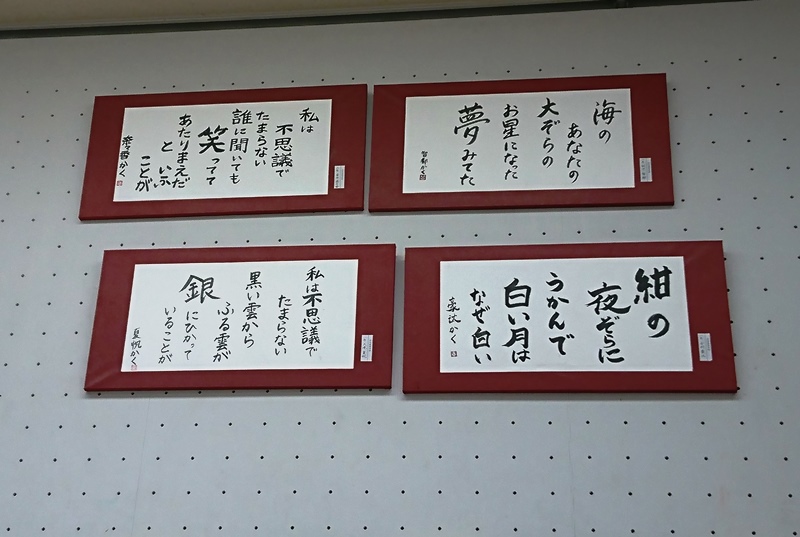 海の
あなたの
大ぞらの
お星になった
夢みてた
私は
不思議で
たまらない
誰に聞いても
笑ってて
あたりまえだ
といふ
ことが
紺の
夜ぞらに
うかんで
白い月は
なぜ白い
私は不思議で
たまらない
黒い雲から
ふる雲が
銀にひかって
いることが